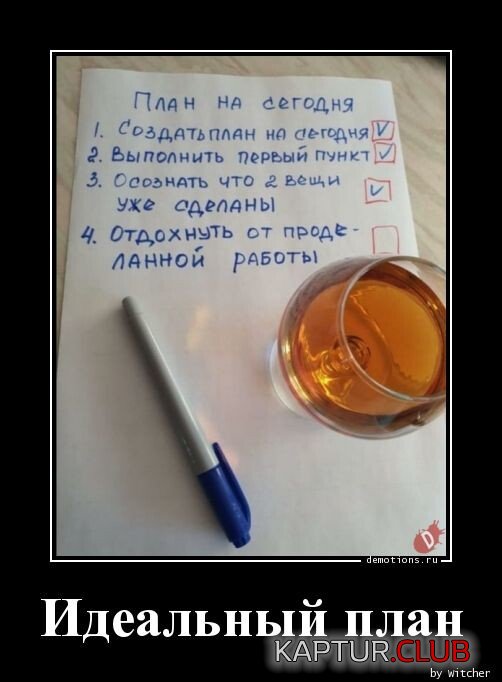 План на сегодня
1. Создать план на сегодня
2. Выполнить первый пункт
3. Осознать что 2 вещи
уже сделаны
4. Отдохнуть от проде-
ланной работы
demotions.ru
Идеальный план
KAPTUR.CLUB
by Witcher